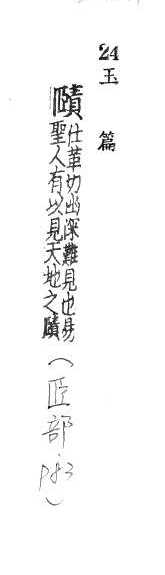 24 玉篇
賾
仕革切幽深難見也易
聖人有以見天地之賾
部